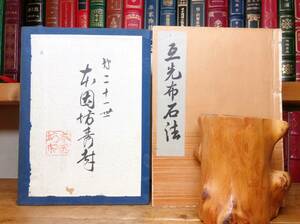 第二十一世
本因坊秀哉
互先布石法